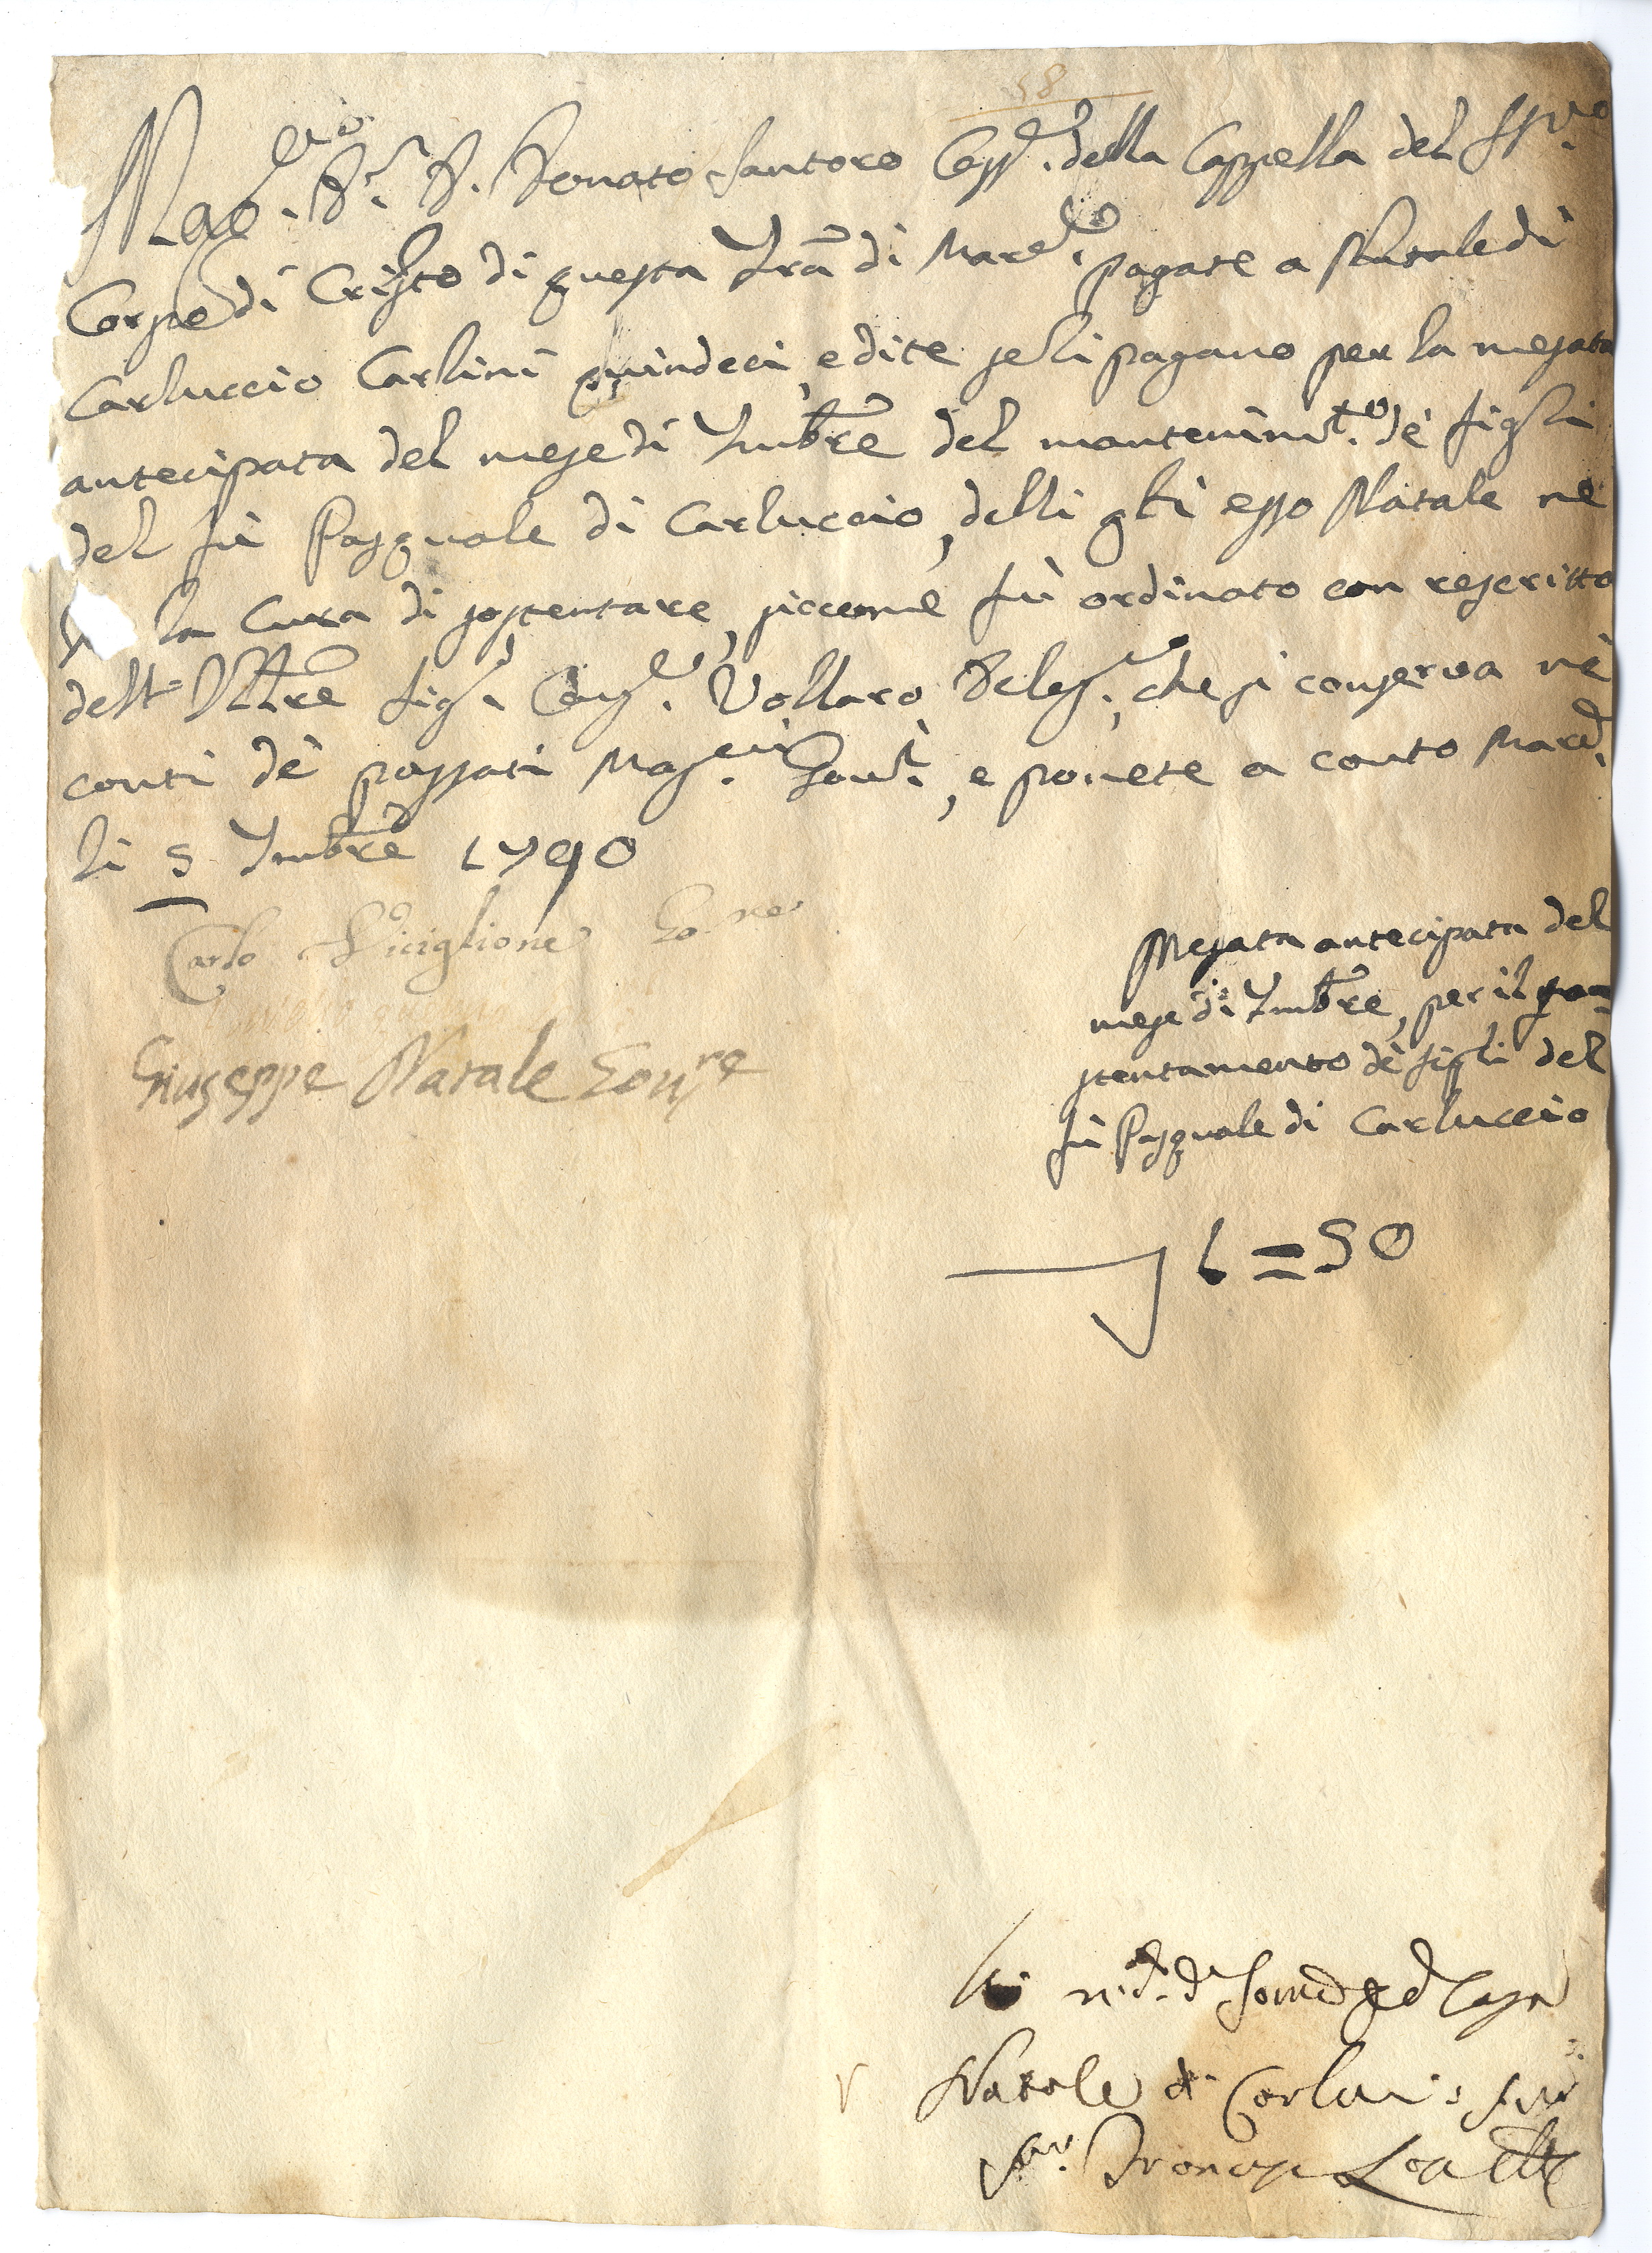 58
Mag.co Sr. D. Donato Santoro Capp. della Cappella del SS.mo
Corpo di Cristo di questa Trã di Mar.do pagate a Natale di
Carluccio Carlini quindeci, e dite se li pagano per la mesata
antecipata del mese di 7mbre del mantenim.to dè figli
del fù Pasquale di Carluccio, delli qli esso Natale ne
la Cura di sostentare, siccome fù ordinato con rescritto
dell' Ill.tre Sig. Cons.e Vollaro Deleg., che si conserva nè
conti dè passati Mag.ci Gov.i, e ponete a conto Mar.d.
li 5 7mbre 1790
Carlo Viciglione Go.re
Giuseppe Natale Gov.re
Mesata antecipata del
mese di 7mbre, per il so=
stentamento dè figli del
fù Pasquale di Carluccio
1=50
Natale di